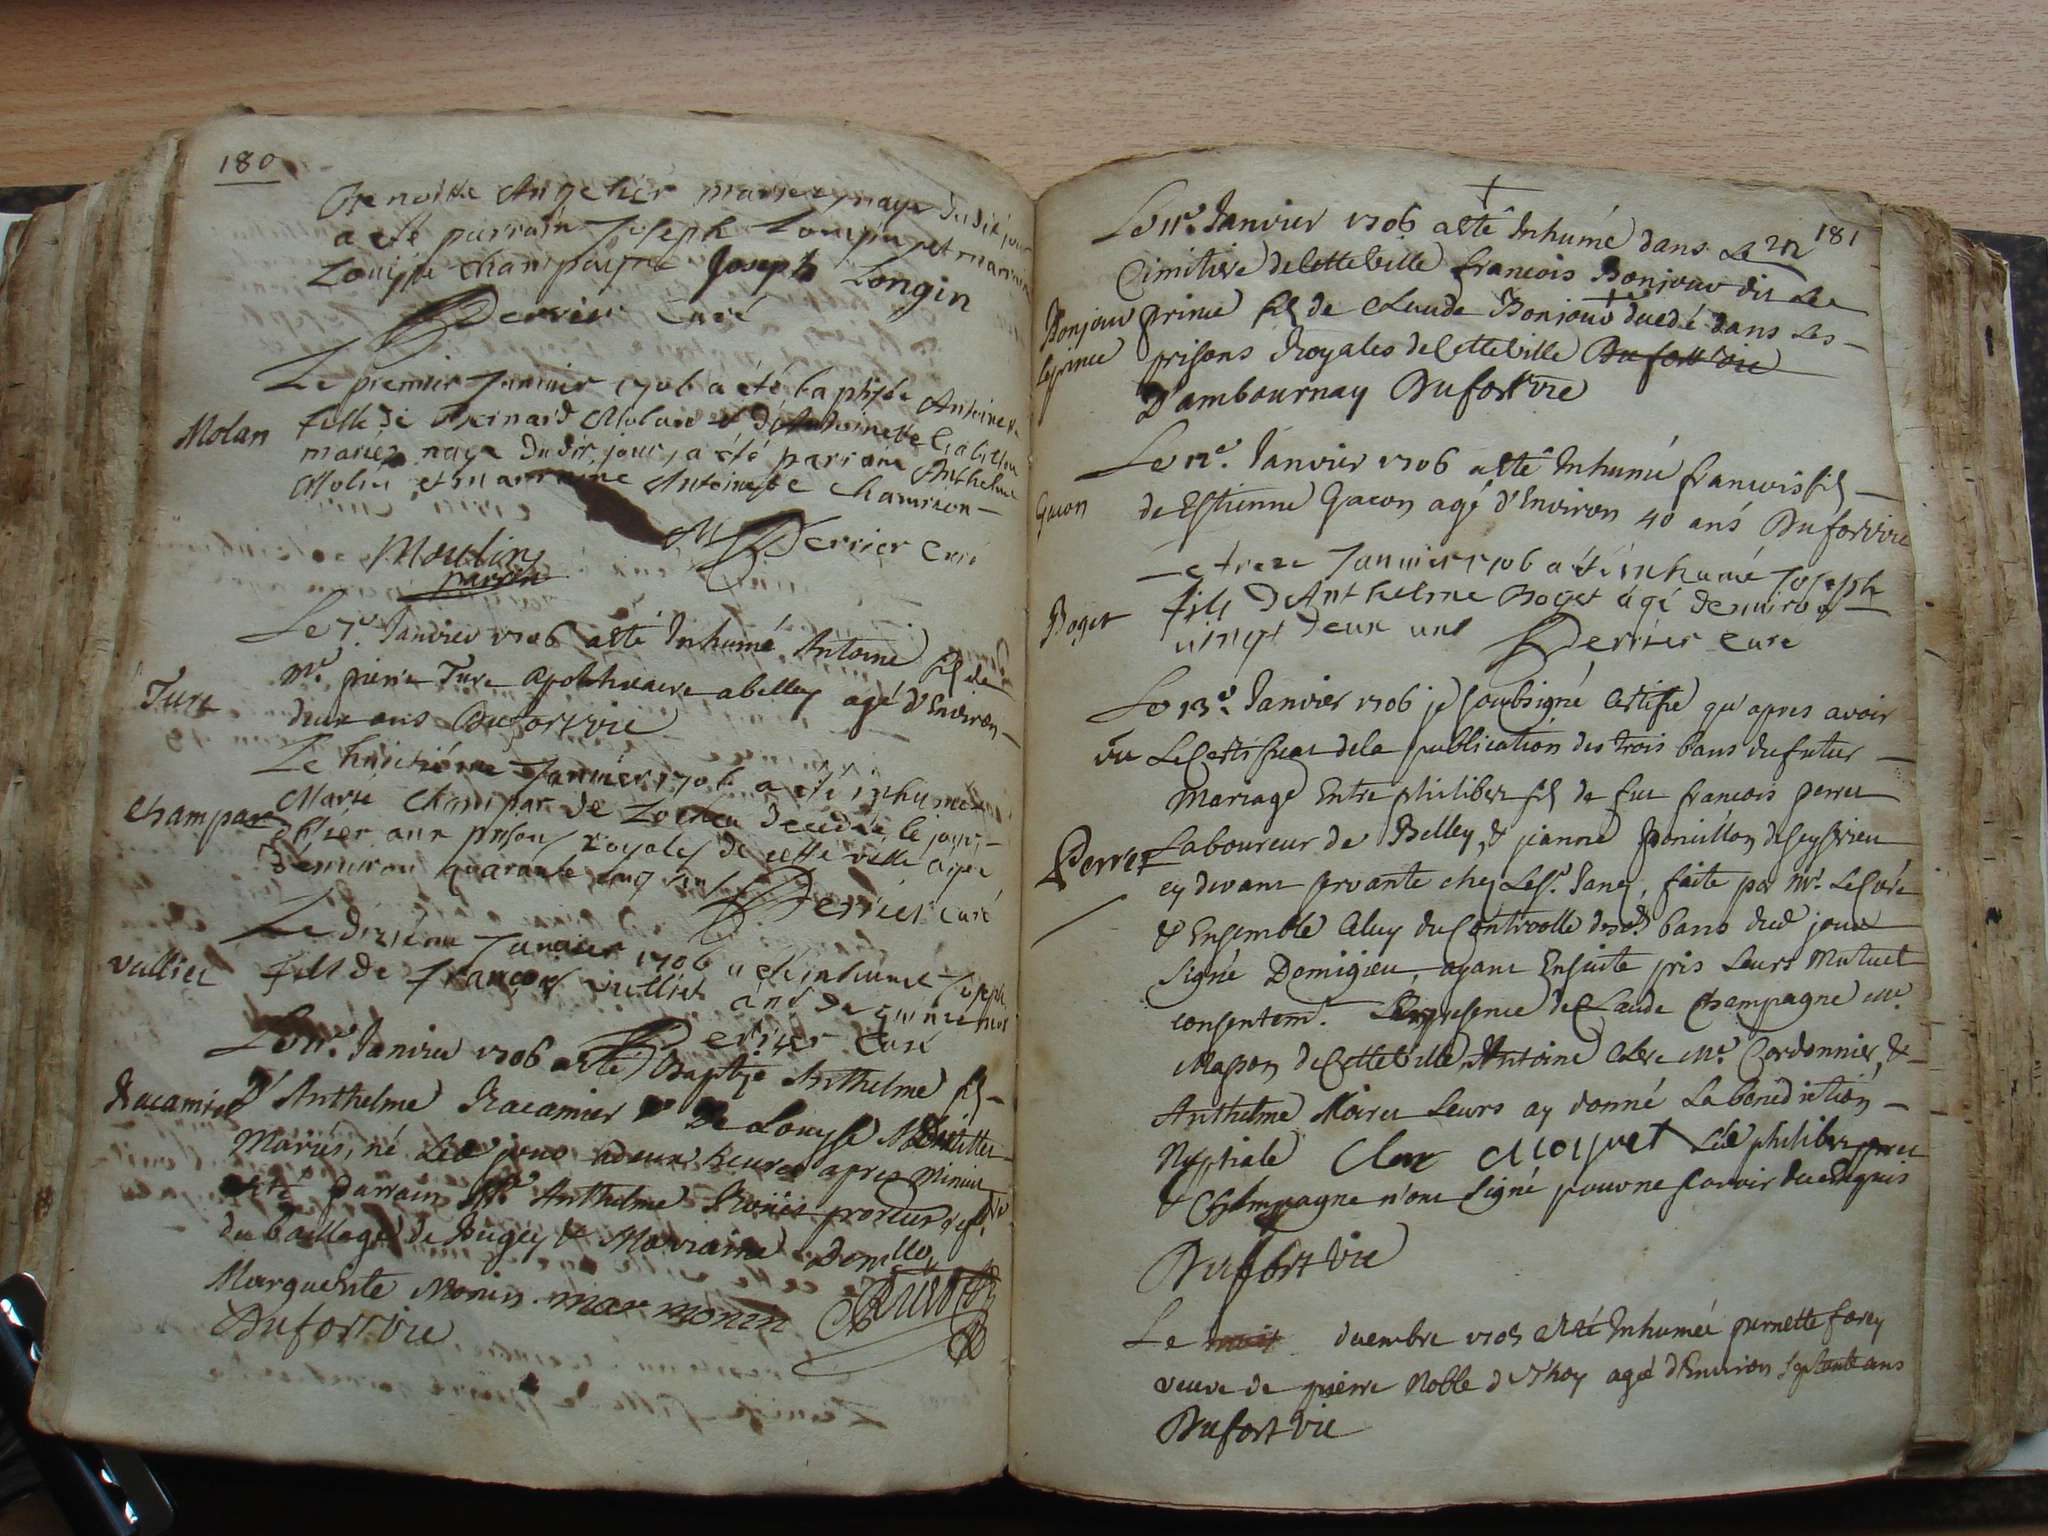 180
Benoitte Angelier mariez naye dudit jour
a été parrain Joseph Longin et marraine
Louise Champagne Joseph Longin
Derrier curé
Le premier Janvier 1706 a été baptisée Antoinette
Molan
fille de Bernard Molan et d'Anthoinette
mariez naye dudit jour, a été parrain Anthelme
Molin et marraine Antoinette Chamion
Derrier curé
Moulin
parrin
Le 7e. Janvier 1706 a esté Inhumé Antoine fils de
Turc
Mr. pierre Turc apothicaire a belley agé d'Environ
deux ans Dufort vic
Le huictiéme Janvier 1706 a été inhumée
Champar
Marie Champar de decedée le jour
d'hier aux prisons royales de cette ville agée
d'environ quarante cinq ans Derrier curé
Le dixiéme Janvier 1706 a été inhumé Joseph
Vulliet
fils de François Vulliet âgé de quinze mois
Derrier curé
Le 11e. Janvier 1706 a esté Baptisé Anthelme fils
Racamier
d'Anthelme Racamier & De Louyse
Mariés, né led jour a deux heures apres Minuit
a esté parrain Mr Anthelme procureur
du baillage de Bugey & Marraine Demlle
Marguerite Monin mar monin
Dufort vic
181
Le 11e. Janvier 1706 a esté Inhumé dans Le
Cimitiere de Cette Ville francois Bonjour dit Le
Bonjour
Leprince
prince fils de Claude Bonjour decedé dans Les
prisons Royales de Cette Ville Dufort vic
D'ambournay Dufort vic
Le 12e. Janvier 1706 a esté Inhumé francois fils
Gacon
de Estienne Gacon agé d'Environ 40 ans Dufort vic
Le treze Janvier 1706 a été inhumé Joseph
Boget
fils d'Anthelme Boget âgé d'environ
vingt deux ans Derrier curé
Le 13e. Janvier 1706 je soubsigné Certifie qu'apres avoir
vu Le Certificat de la publication des trois bans du futur
Mariage Entre philibert fils de feu francois perret
Perret
Laboureur de Belley, & jeanne Ponillon de Seyssieu
cy devant servante chez Le Sr. Jane, faite par Mr. Le Curé
& Ensemble Celuy du Controolle desd. bans dud jour
Signé Demigieu, ayant Ensuite pris Leurs Mutuel
consentemt. En presence de Claude Champagne Me.
Masson de Cette Ville, Antoine Clerc Me. Cordonnier, &
Anthelme Moiret Leurs ay donné La bénédiction
Nuptiale Clerc Led philibert perret
& Champagne n'ont Signé pour ne scavoir de ce Enquis
Dufort vic
Le huit decembre 1705 a Esté Inhumée pernette forey
veuve de pierre Noble agée d'Environ septante ans
Dufort vic